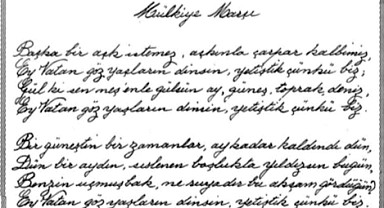 Mülkiye Marşı
Başka bir aşk istemez, aşkınla çarpar kalbimiz,
Ey Vatan göz yaşların dinsin, yetiştik çünkü biz;
Gül ki sen neş'enle gülsün ay, güneş, toprak, deniz,
Ey Vatan göz yaşların dinsin, yetiştik çünkü biz.
Bir güneştin bir zamanlar, ay kadar kaldındı dün,
Dün bir aydın, sislenen boşlukta yıldızsın bugün,
Benzin uçmuş bak, ne rüyadır bu akşam gördüğün,
Ey Vatan göz yaşların dinsin, yetiştik çünkü biz.